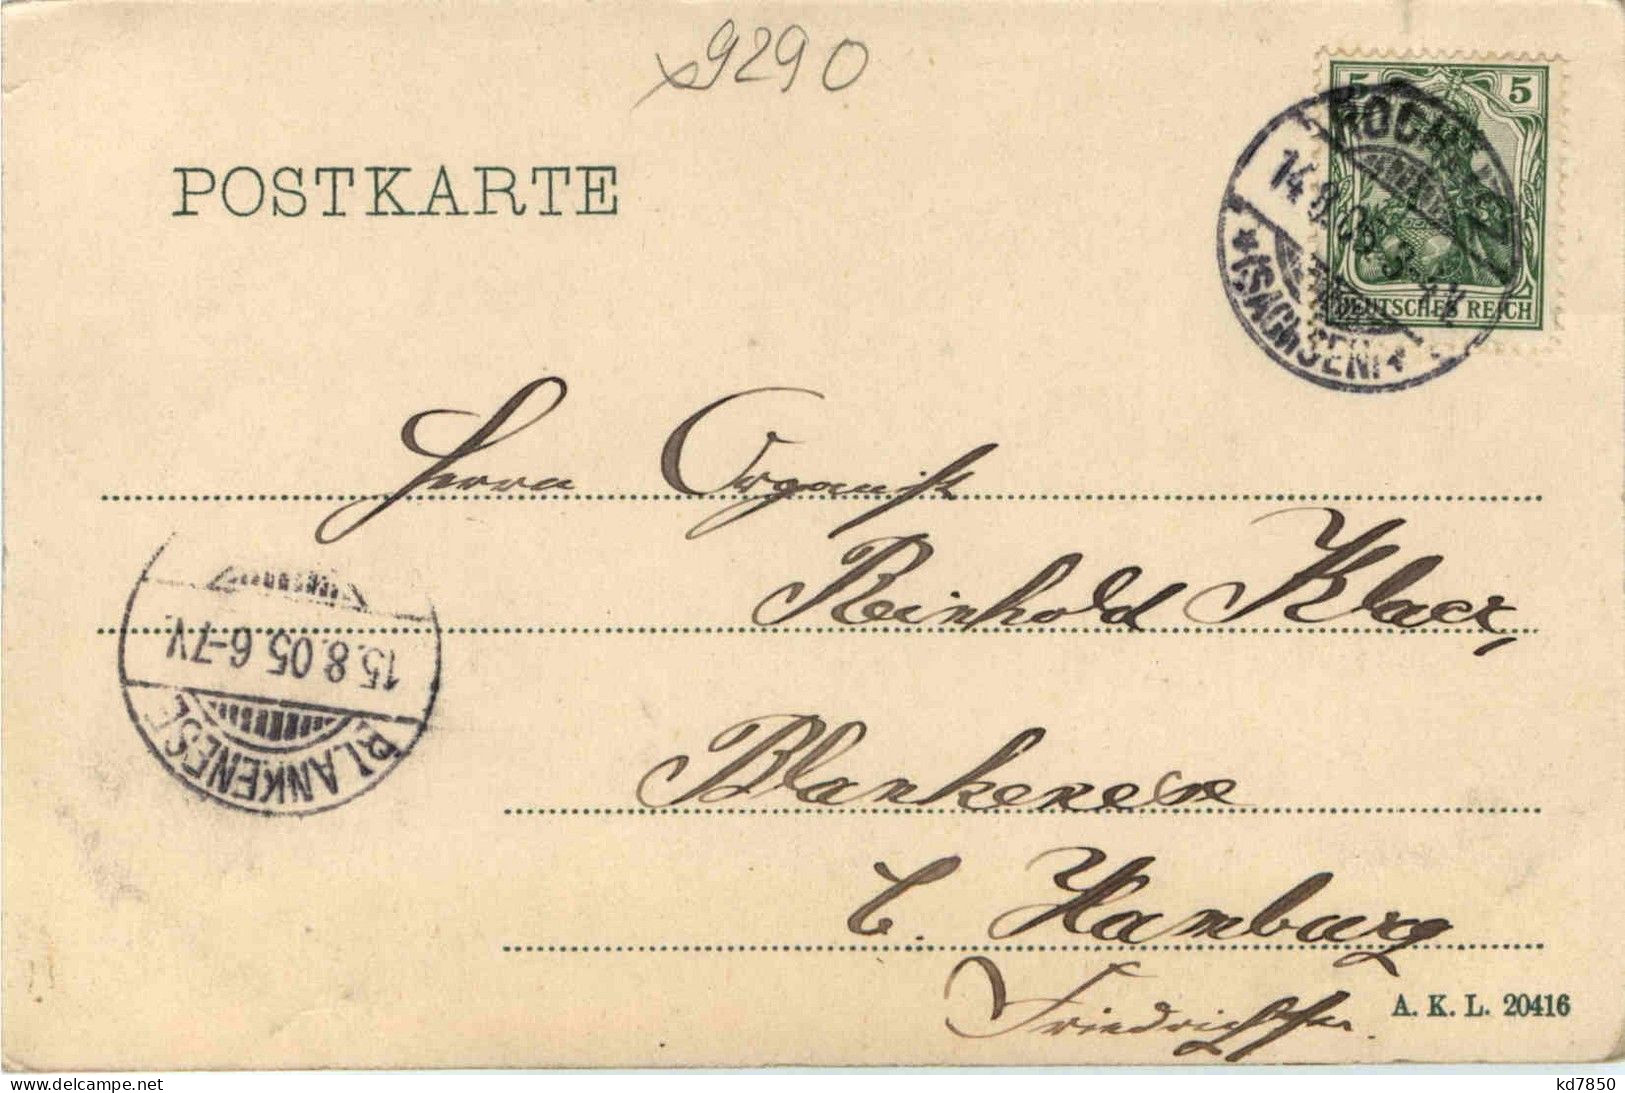 9290
POSTKARTE
5 5
DEUTSCHES REICH
ROCHLITZ
14.8.05. 3-4 N.
*(SACHSEN)*
Herrn Organist
Reinhold Klaer,
Blankenese
b. Hamburg
Friedrichstr.
15.8.05.6-7V.
BLANKENESE
A. K. L. 20416
www.delcampe.net
kd7850